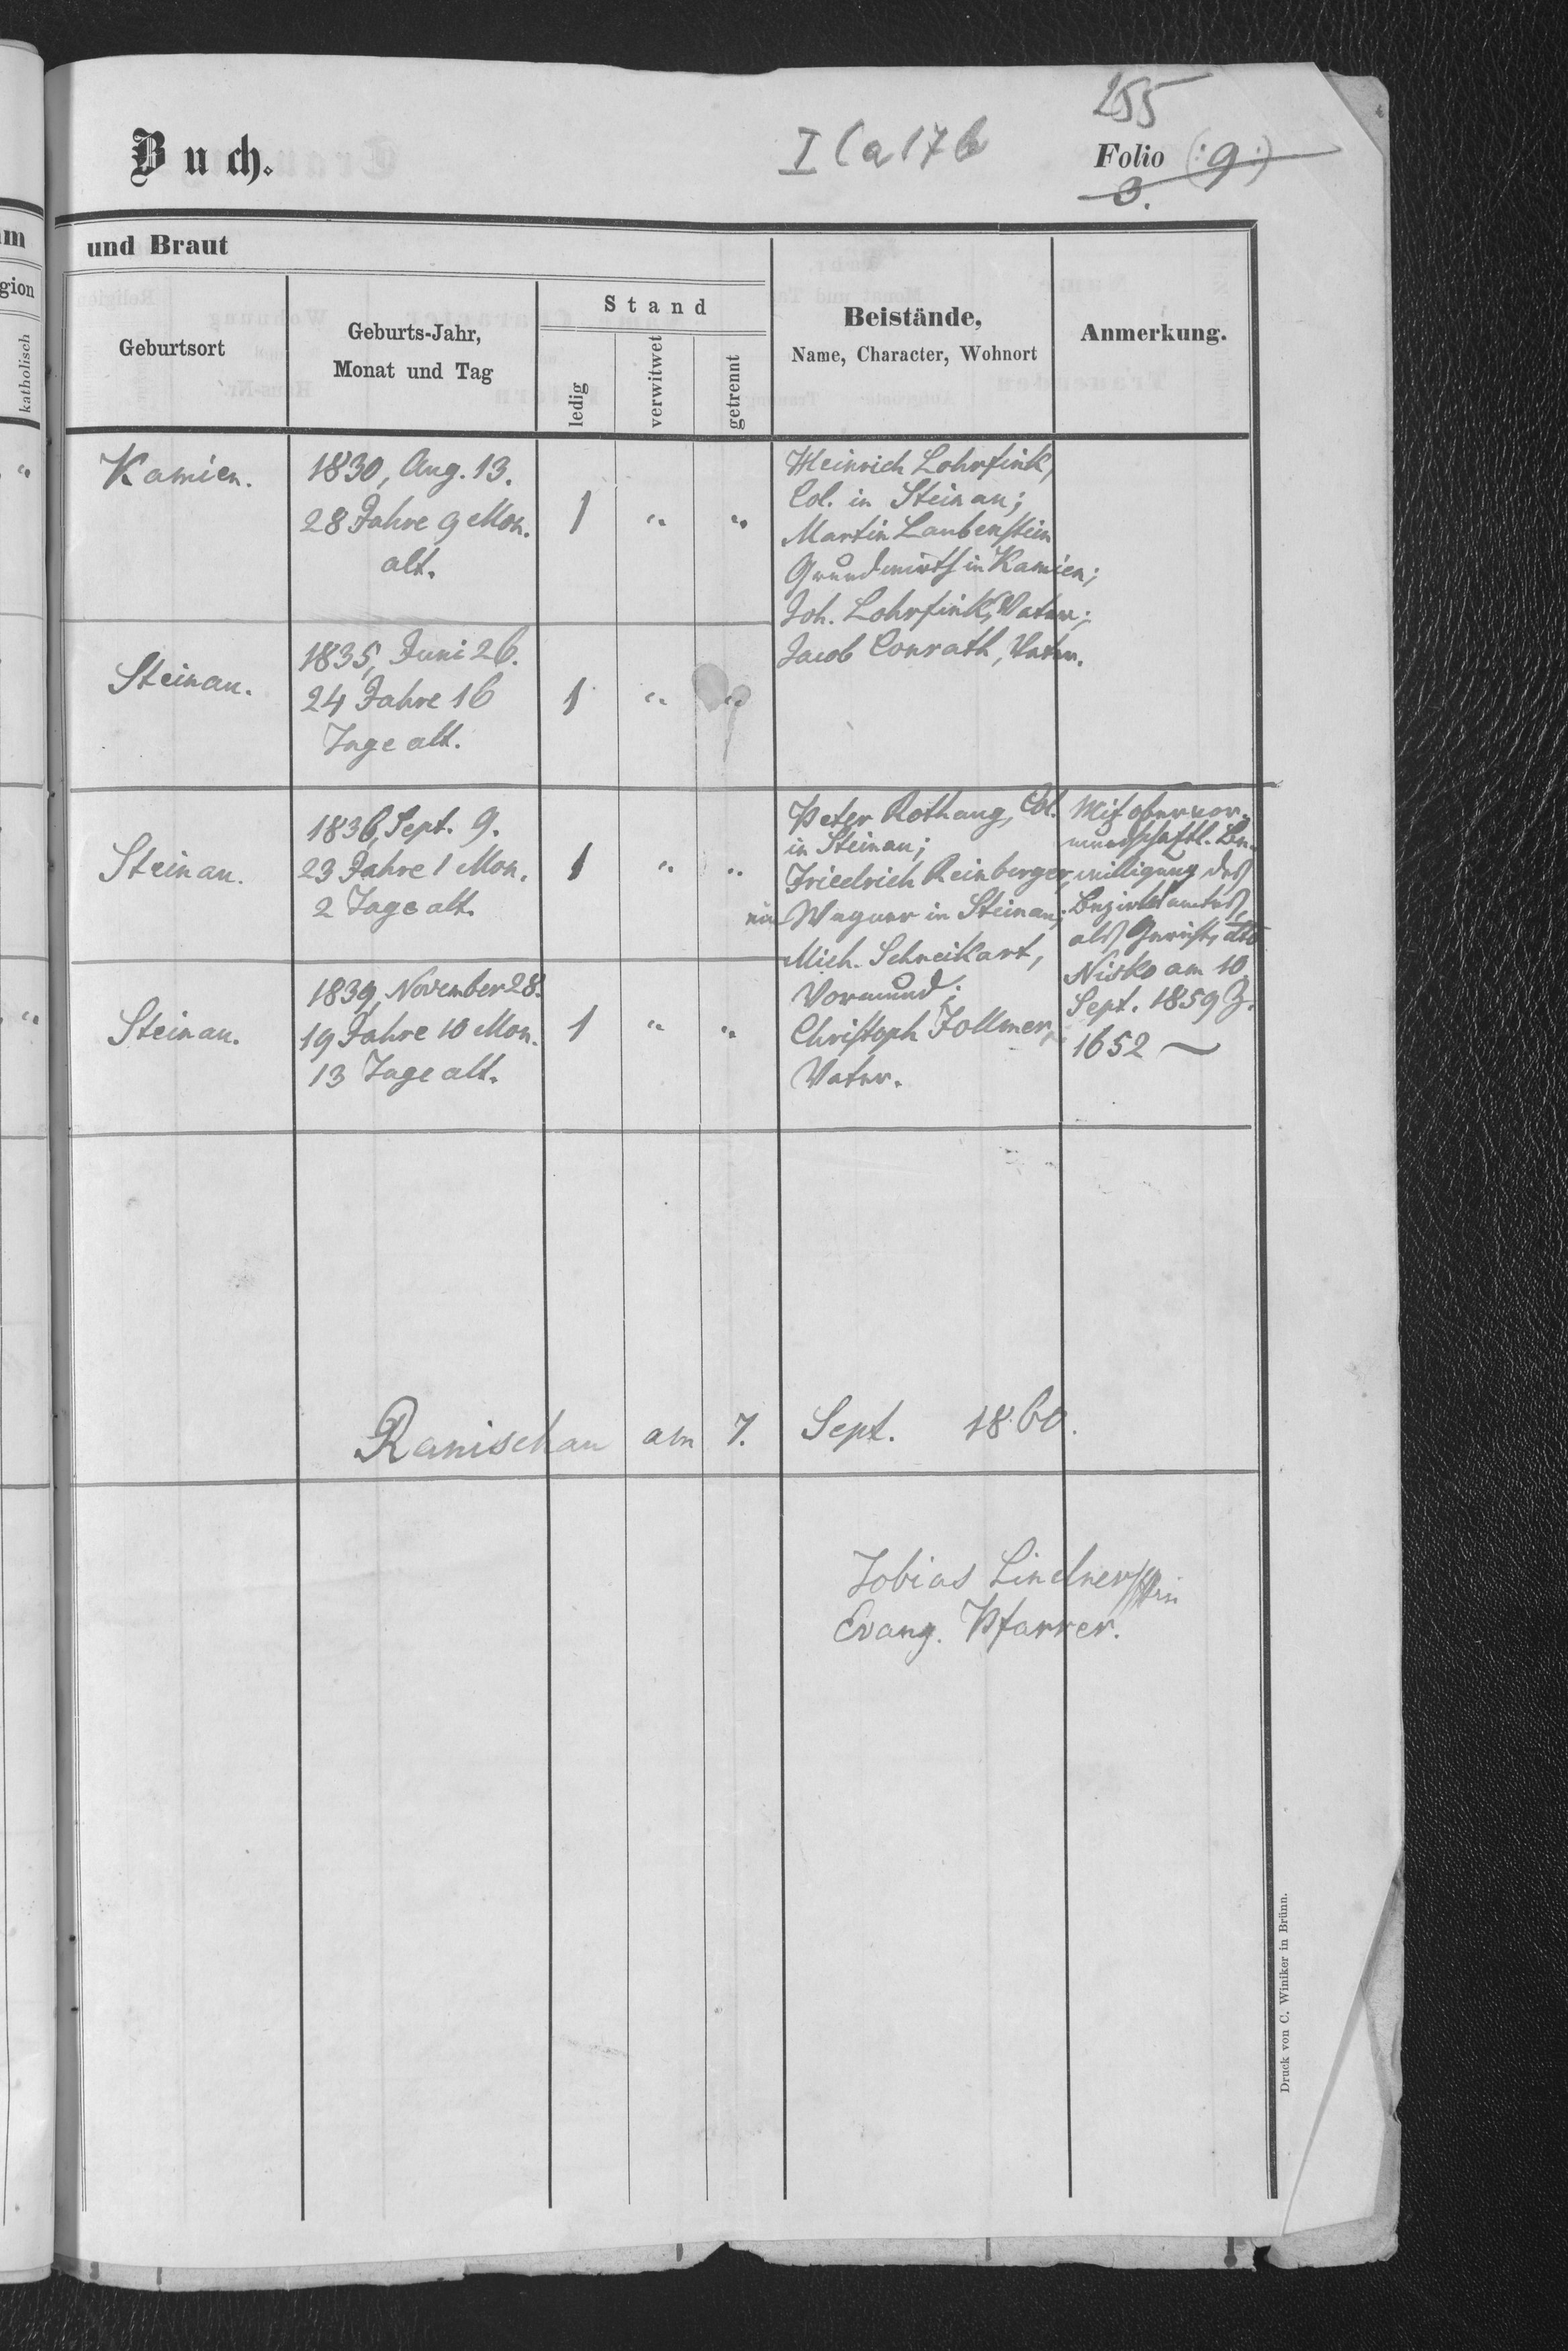 255
Buch.
I Ca 17 b
Folio (:9:)
3.
m
und Braut
gion
katholisch
Geburtsort
Geburts-Jahr,
Monat und Tag
Stand
ledig
verwitwet
getrennt
Beistände,
Name, Character, Wohnort
Anmerkung.
"
Kamien.
1830, Aug. 13.
28 Jahre 9 Mon.
alt.
1 " "
Heinrich Lohrfink,
Col. in Steinau;
Martin Laubenstein
Grundwirth in Kamien;
Joh. Lohrfink, Vater;
Jacob Conrath, Vater.
Steinau.
1835, Juni 26.
24 Jahre 16
Tage alt.
1 " "
Steinau.
1836, Sept. 9.
23 Jahre 1 Mon.
2 Tage alt.
1 " "
Peter Rothaug, Col.
in Steinau;
Friedrich Reinberger,
Wagner in Steinau;
Mich. Schneikart,
Vormund;
Christoph Follmer,
Vater.
Mit obervor-
mundschaftl. Be-
willigung des
Bezirksamtes
als Gericht, dto
Nisko am 10.
Sept. 1859 Z.
1652
"
Steinau.
1839, November 28.
19 Jahre 10 Mon.
13 Tage alt.
1 " "
Ranischau am 7. Sept. 1860.
Tobias Lindner
Evang. Pfarrer.
Druck von C. Winiker in Brünn.